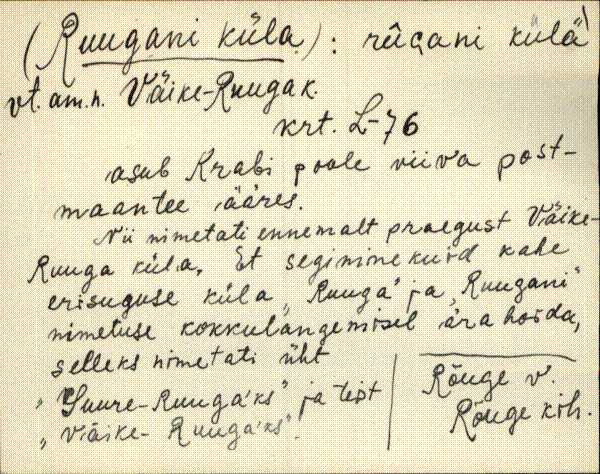 (Ruugani küla): rūgani külä
vt. am. n. Väike-Ruugak.
krt. L-76
asub Krabi poole viiva post-
maantee ääres.
Nii nimetati ennemalt praegust Väike-
Ruuga küla. Et segiminekuid kahe
erisuguse küla „Ruuga" ja „Ruugani"
nimetuse kokkulangemisel ära hoida,
selleks nimetati üht
„Suure-Ruuga'ks" ja teist
„Väike-Ruuga'ks".
Rõuge v.
Rõuge kih.